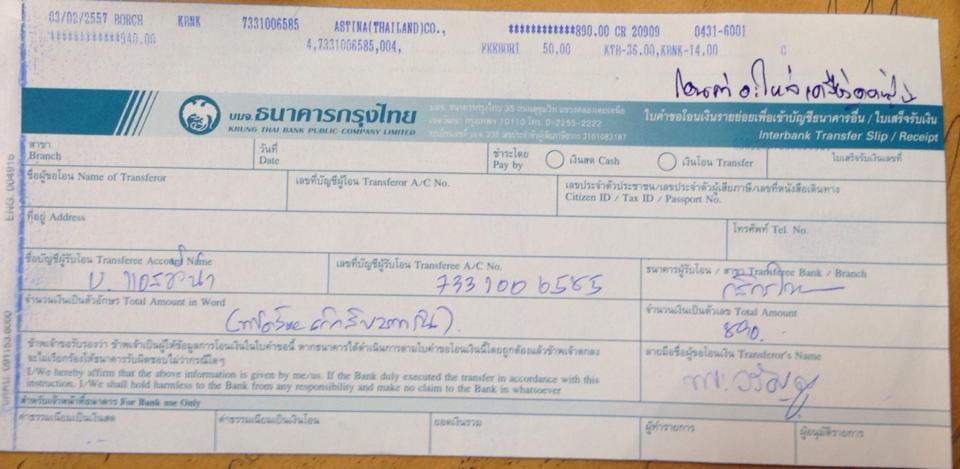 03/02/2557 BORCH KBNK 7331006585 ASTINA(THAILAND)CO., ***********890.00 CR 20909 0431-6001
***********940.00 4,7331006585,004, 50.00 KTB-36.00,KBNK-14.00 C
บมจ.ธนาคารกรุงไทย
KRUNG THAI BANK PUBLIC COMPANY LIMITED
ใบคำขอโอนเงินรายย่อยเพื่อเข้าบัญชีธนาคารอื่น / ใบเสร็จรับเงิน
Interbank Transfer Slip / Receipt
สาขา วันที่ ชำระโดย เงินสด Cash เงินโอน Transfer ใบเสร็จรับเงินเลขที่
Branch Date Pay by
ชื่อผู้ขอโอน Name of Transferor เลขที่บัญชีผู้โอน Transferor A/C No. เลขประจำตัวประชาชน/เลขประจำตัวผู้เสียภาษี/เลขที่หนังสือเดินทาง
Citizen ID / Tax ID / Passport No.
ที่อยู่ Address โทรศัพท์ Tel. No.
ชื่อบัญชีผู้รับโอน Transferee Account Name เลขที่บัญชีผู้รับโอน Transferee A/C No. ธนาคารผู้รับโอน / สาขา Transferee Bank / Branch
7331006585 กสิกรไทย
จำนวนเงินเป็นตัวอักษร Total Amount in Word จำนวนเงินเป็นตัวเลข Total Amount
(แปดร้อยเก้าสิบบาทถ้วน) 890.
ข้าพเจ้าขอรับรองว่า ข้าพเจ้าเป็นผู้ให้ข้อมูลการโอนเงินในใบคำขอนี้ หากธนาคารได้ดำเนินการตามใบคำขอโอนเงินนี้โดยถูกต้องแล้วข้าพเจ้าตกลง
จะไม่เรียกร้องให้ธนาคารรับผิดชอบไม่ว่ากรณีใดๆ ลายมือชื่อผู้ขอโอนเงิน Transferor's Name
I/We hereby affirm that the above information is given by me/us. If the Bank duly executed the transfer in accordance with this
instruction. I/We shall hold harmless to the Bank from any responsibility and make no claim to the Bank in whatsoever
สำหรับเจ้าหน้าที่ธนาคาร For Bank use Only
ค่าธรรมเนียมเป็นเงินสด ค่าธรรมเนียมเป็นเงินโอน ยอดเงินรวม ผู้ทำรายการ ผู้อนุมัติรายการ